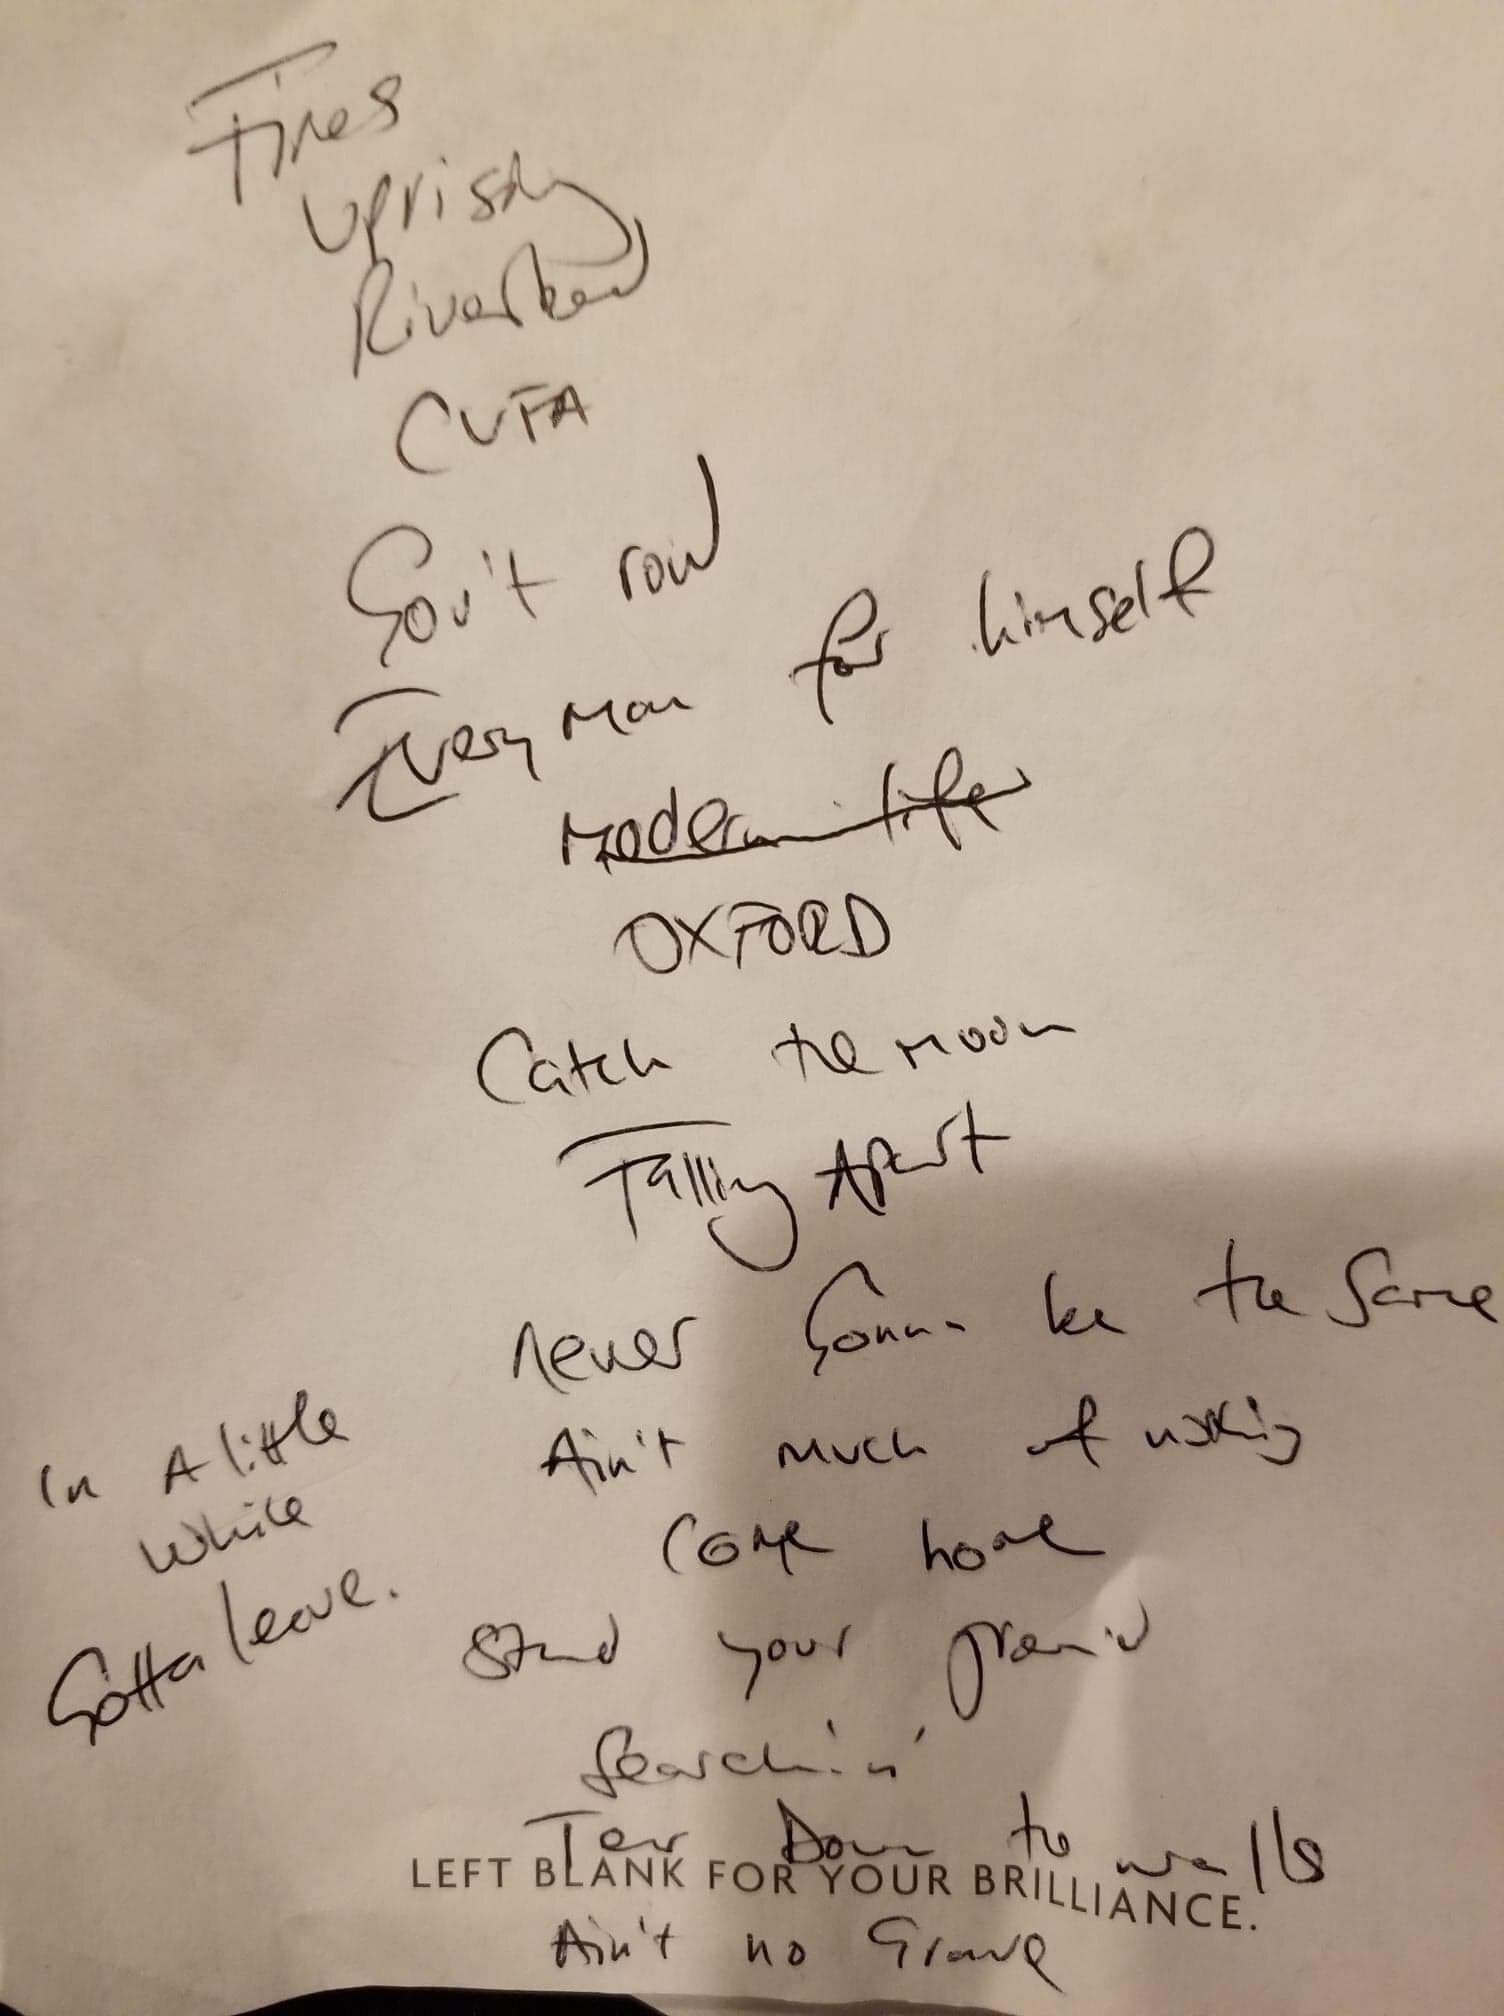 Fires
Uprising
Riverbend
CVTA
Gov't road
Every man for himself
Modern life
OXFORD
Catch the moon
Falling Apart
Never Gonna be the Same
Ain't much of nothing
Come home
Stand your ground
Searchin'
Tear Down the walls
LEFT BLANK FOR YOUR BRILLIANCE.
Ain't no Grave
In A little
while
Gotta leave.